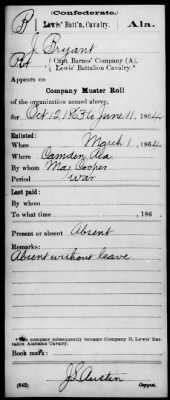 (Confederate.)
B | Lewis' Batt'n, Cavalry. | Ala.
J. Bryant
Pvt, Capt. Barnes' Company (A),
Lewis' Battalion Cavalry.*
Appears on
Company Muster Roll
of the organization named above,
for Oct 12, 1863 to June 11, 1864.
Enlisted:
When March 1, 1864.
Where Camden Ala
By whom Maj Cooper
Period War
Last paid:
By whom
To what time , 186 .
Present or absent Absent
Remarks:
Absent without leave
*This company subsequently became Company B, Lewis' Battalion Alabama Cavalry.
Book mark:
J. S. Austin
(642) Copyist.